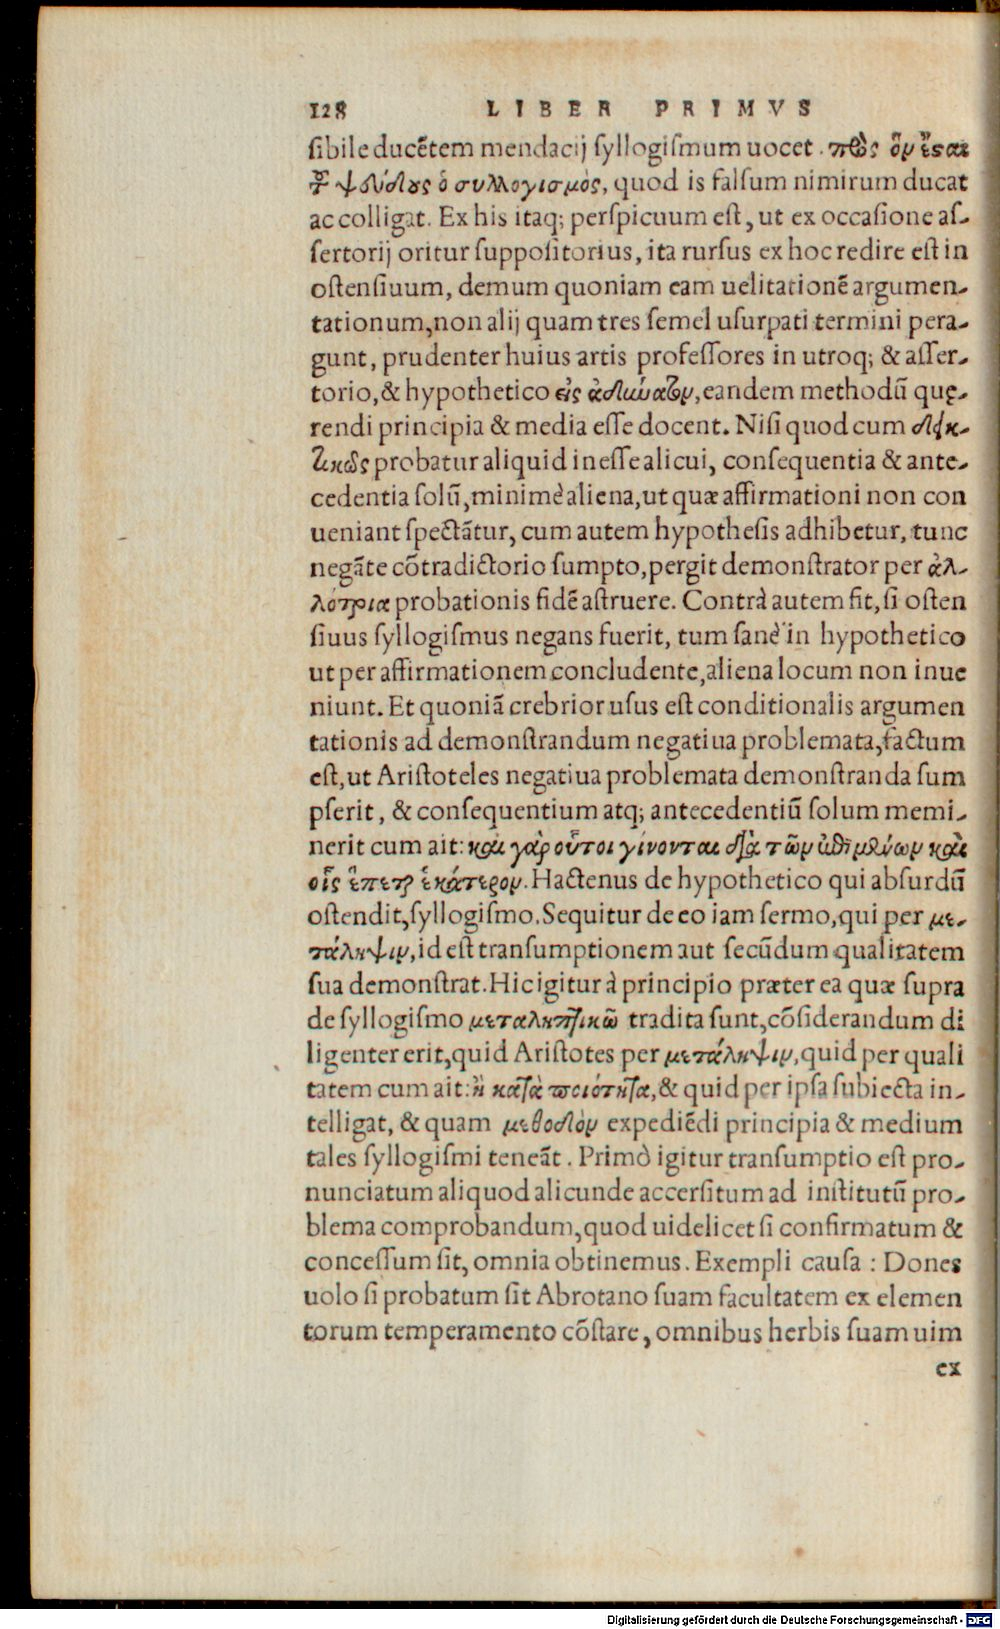 128 LIBER PRIMVS
sibile ducẽtem mendacij syllogismum uocet. πρὸς ὃν ἔσαι
τ͂ ψεύδους ὁ συλλογισμὸς, quod is falsum nimirum ducat
ac colligat. Ex his itaq; perspicuum est, ut ex occasione as-
sertorij oritur suppositorius, ita rursus ex hoc redire est in
ostensiuum, demum quoniam eam uelitationẽ argumen-
tationum, non alij quam tres semel usurpati termini pera-
gunt, prudenter huius artis professores in utroq; & asser-
torio, & hypothetico εἰς ἀδύνατον, eandem methodũ quę-
rendi principia & media esse docent. Nisi quod cum δεικ-
τικῶς probatur aliquid inesse alicui, consequentia & ante-
cedentia solũ, minimè aliena, ut quæ affirmationi non con
ueniant spectãtur, cum autem hypothesis adhibetur, tunc
negãte cõtradictorio sumpto, pergit demonstrator per ἀλ-
λότρια probationis fidẽ astruere. Contrà autem fit, si osten
siuus syllogismus negans fuerit, tum sanè in hypothetico
ut per affirmationem concludente, aliena locum non inue
niunt. Et quoniã crebrior usus est conditionalis argumen
tationis ad demonstrandum negatiua problemata, factum
est, ut Aristoteles negatiua problemata demonstranda sum
pserit, & consequentium atq; antecedentiũ solum memi-
nerit cum ait: καὶ γὰρ οὗτοι γίνονται διὰ τῶν ἑπομένων καὶ
οἷς ἕπεται ἑκάτερον. Hactenus de hypothetico qui absurdũ
ostendit, syllogismo. Sequitur de eo iam sermo, qui per με-
τάληψιν, id est transumptionem aut secũdum qualitatem
sua demonstrat. Hic igitur à principio præter ea quæ supra
de syllogismo μεταληπτικῶ tradita sunt, cõsiderandum di
ligenter erit, quid Aristotes per μετάληψιν, quid per quali
tatem cum ait: ἢ κατὰ ποιότητα, & quid per ipsa subiecta in-
telligat, & quam μέθοδον expediẽdi principia & medium
tales syllogismi teneãt. Primò igitur transumptio est pro-
nunciatum aliquod alicunde accersitum ad institutũ pro-
blema comprobandum, quod uidelicet si confirmatum &
concessum sit, omnia obtinemus. Exempli causa: Dones
uolo si probatum sit Abrotano suam facultatem ex elemen
torum temperamento cõstare, omnibus herbis suam uim
ex
Digitalisierung gefördert durch die Deutsche Forschungsgemeinschaft - DFG